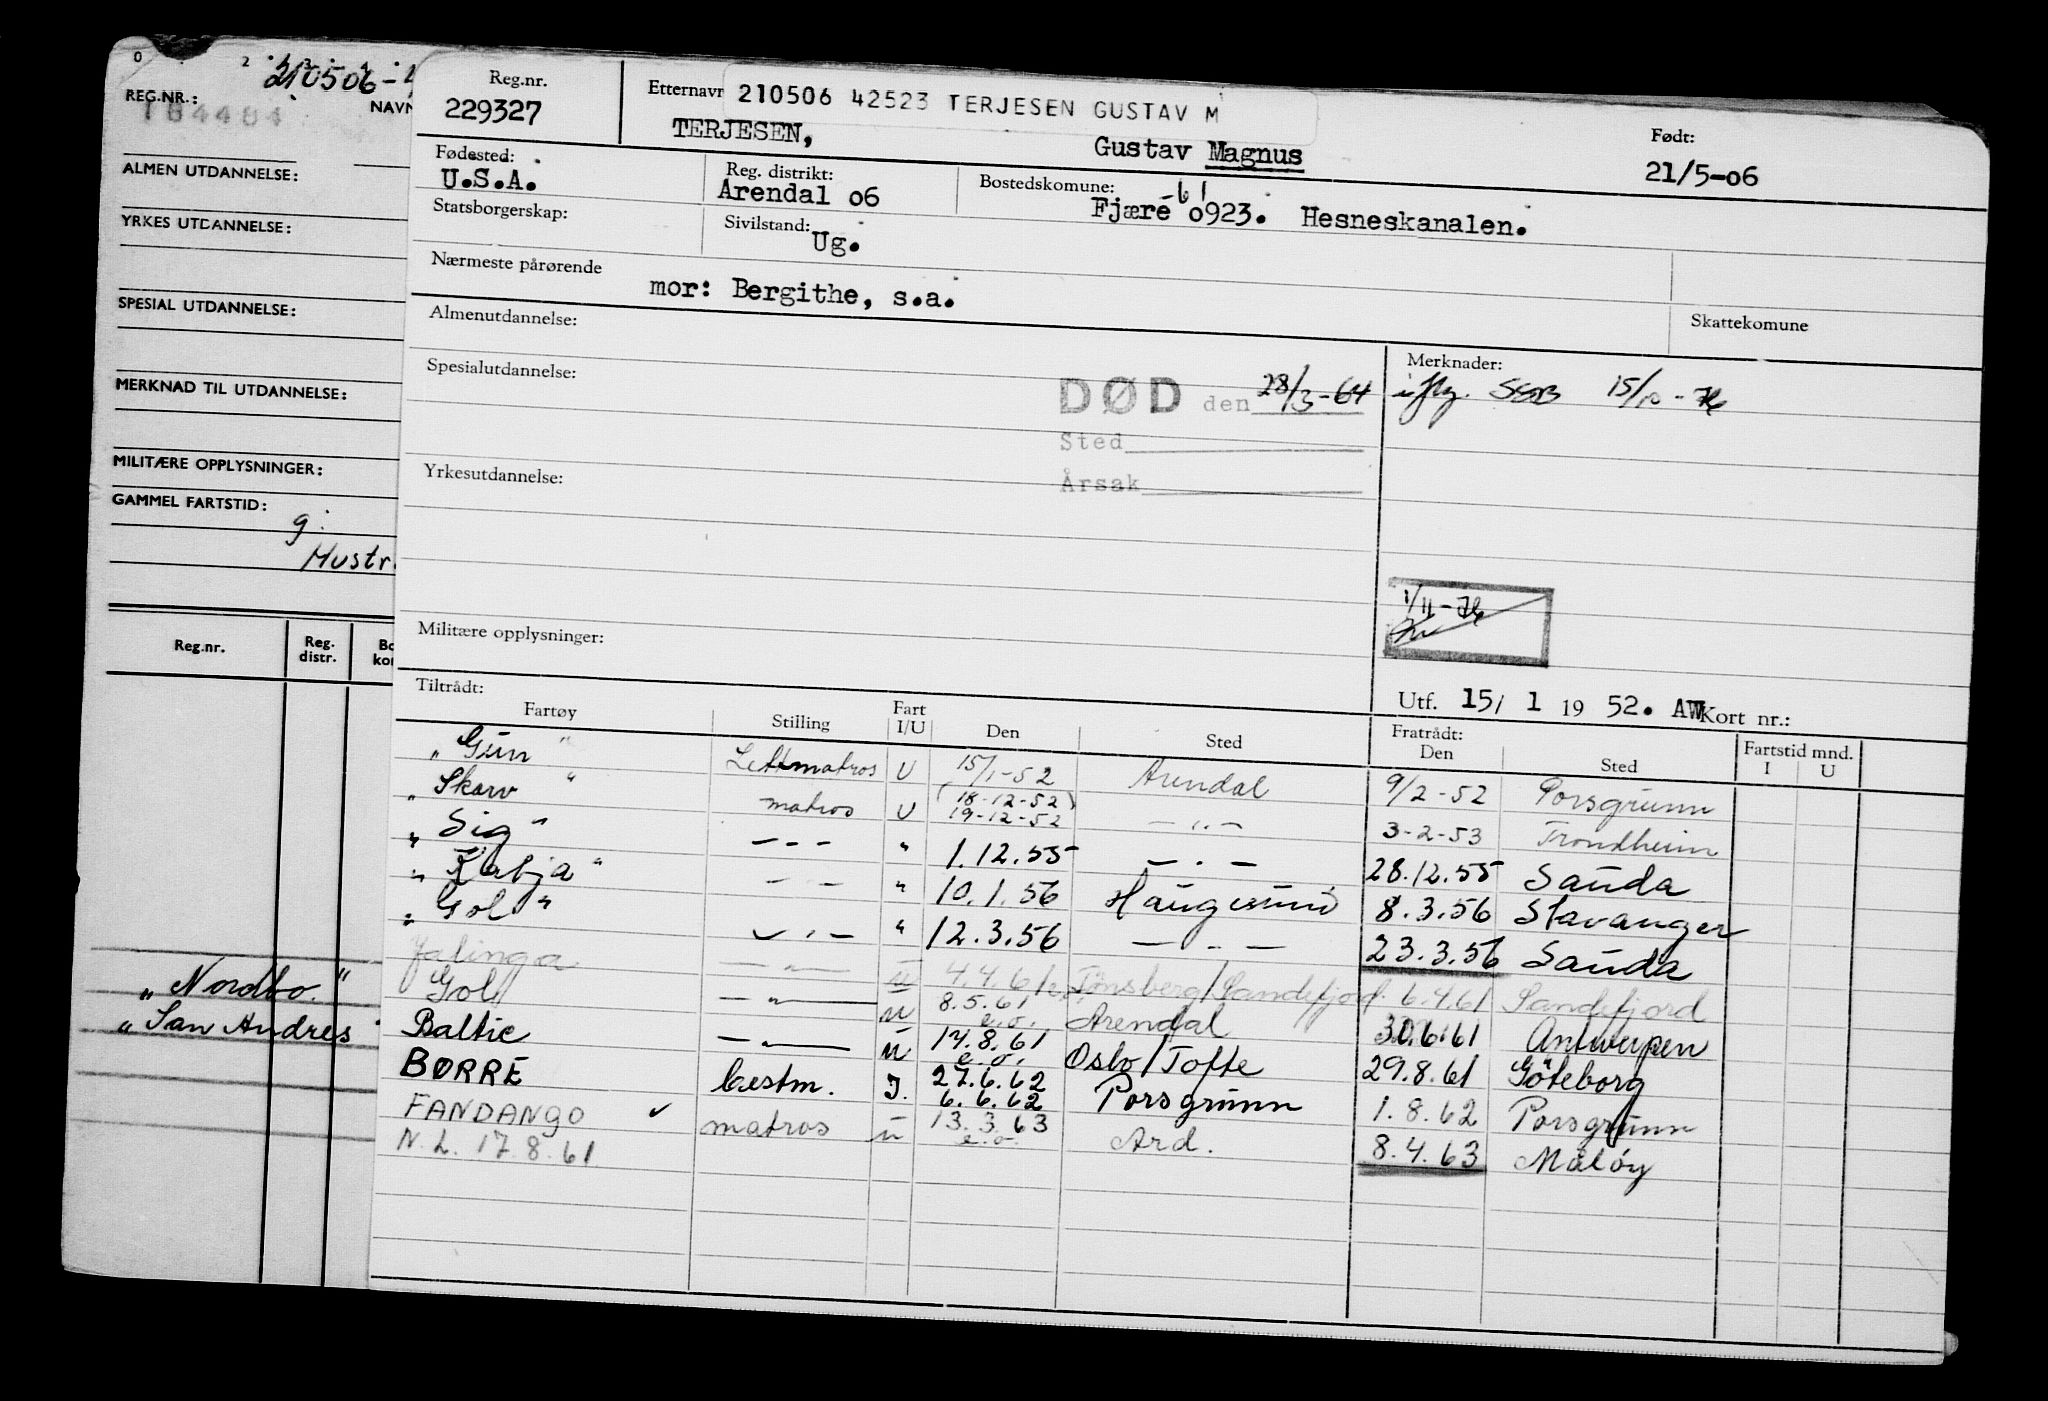 0 2 3
210506-
REG.NR.:
NAVN
ALMEN UTDANNELSE:
YRKES UTDANNELSE:
SPESIAL UTDANNELSE:
MERKNAD TIL UTDANNELSE:
MILITÆRE OPPLYSNINGER:
GAMMEL FARTSTID:
g.
Mustr.
Reg.nr. Reg. distr. Bo kor
"Nordbo."
"San Andres"
Reg.nr. 229327
Etternavn 210506 42523 TERJESEN GUSTAV M
TERJESEN, Gustav Magnus
Født: 21/5-06
Fødested: U.S.A.
Reg. distrikt: Arendal 06
Bostedskomune: Fjære 0923. Hesneskanalen.
61
Statsborgerskap:
Sivilstand: Ug.
Nærmeste pårørende
mor: Bergithe, s.a.
Skattekomune
Almenutdannelse:
Spesialutdannelse:
DØD den 28/3-64
Sted
Årsak
Merknader:
iflg. SSB 15/10-76
Yrkesutdannelse:
1/11-76
Militære opplysninger:
Utf. 15/ 1 19 52. AW Kort nr.:
Tiltrådt: Fratrådt:
Fartøy Stilling Fart I/U Den Sted Den Sted Fartstid mnd. I U
"Gun" Lettmatros U 15/1-52 Arendal 9/2-52 Porsgrunn
"Skarv" matros U (18-12-52) 19-12-52 —"— 3-2-53 Trondheim
"Sig" --- " 1.12.55 —.— 28.12.55 Sauda
"Katja" -- " 10.1.56 Haugesund 8.3.56 Stavanger
"Gol" —.— " 12.3.56 —..— 23.3.56 Sauda
Jalinga —"— u 4.4.61 Tønsberg/Sandefjord 6.4.61 Sandefjord
Gol —"— u 8.5.61 e.o. Arendal 30.6.61 Antwerpen
Baltic —"— u 17.8.61 e.o. Oslo/Tofte 29.8.61 Göteborg
BØRRE bestm. I. 27.6.62 6.6.62 Porsgrunn 1.8.62 Porsgrunn
FANDANGO ✓ matros u 13.3.63 e.o. Ard. 8.4.63 Måløy
N.L. 17.8.61